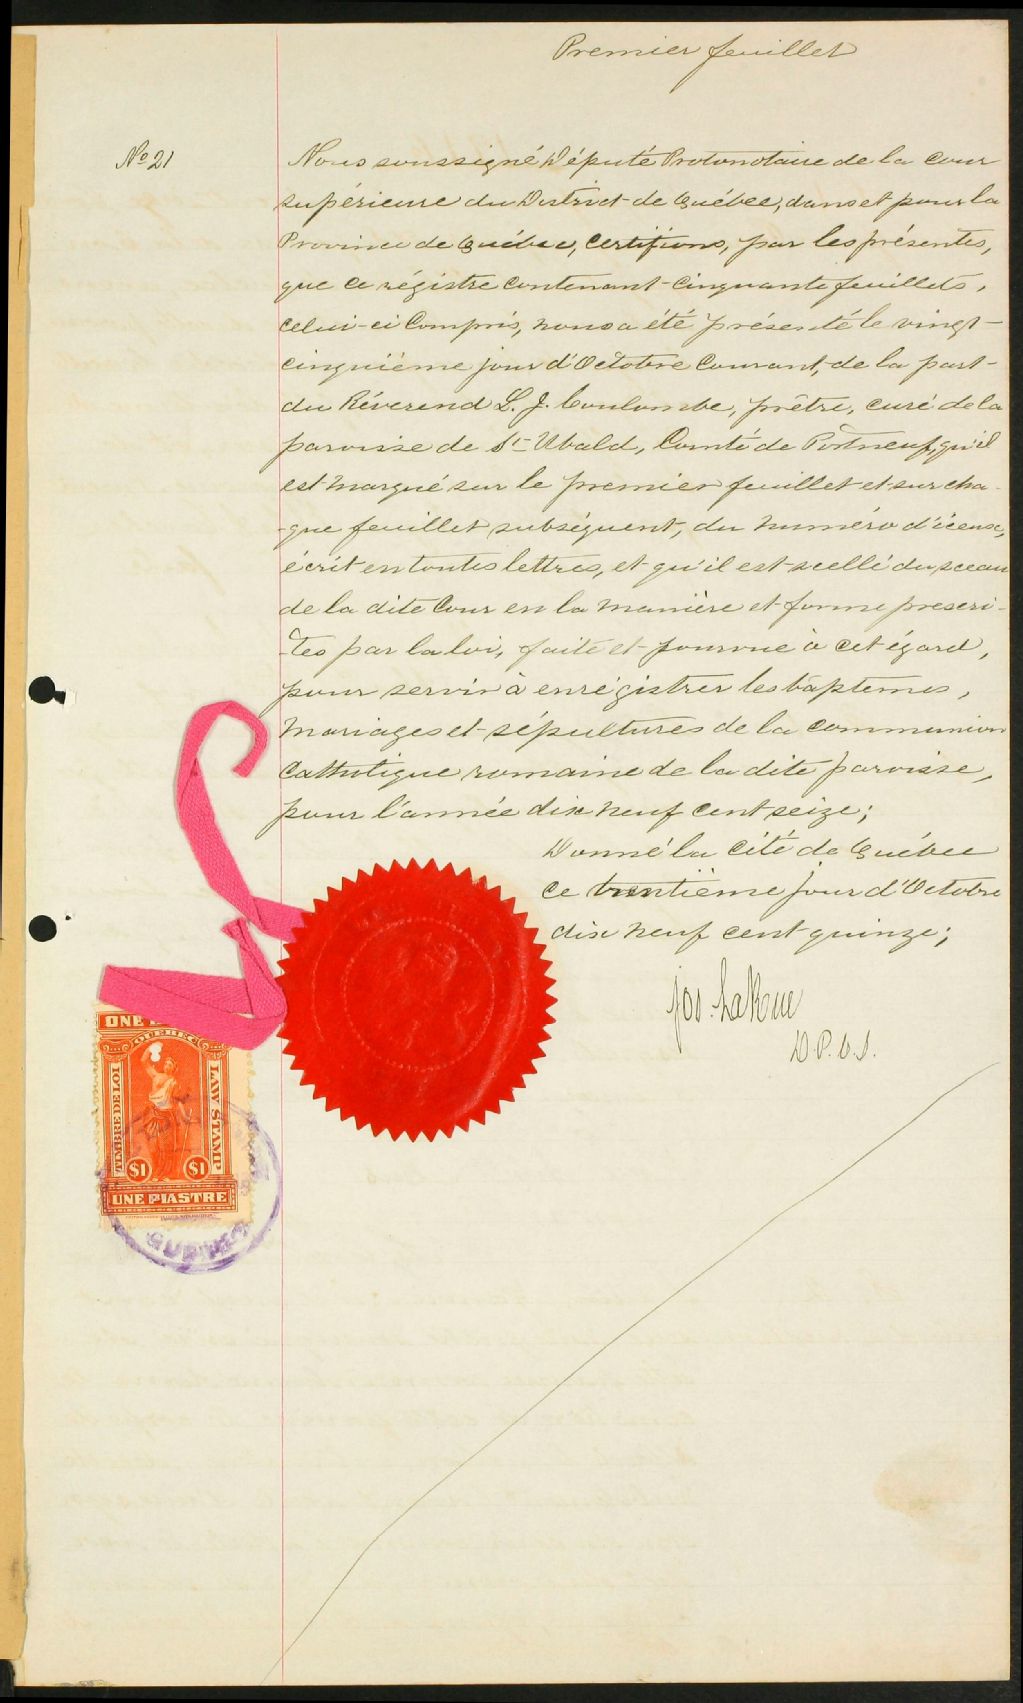 Premier feuillet
No 21
Nous soussigné Député Protonotaire de la Cour
supérieure du District de Québec, dans et pour la
Province de Québec, Certifions, par les présentes,
que ce régistre contenant cinquante feuillets,
celui-ci Compris, nous a été présenté le vingt-
cinquième jour d'Octobre Courant, de la part
du Réverend L. J. Coulombe, prêtre, curé de la
paroisse de St Ubald, Comté de Portneuf, qu'il
est marqué sur le premier feuillet et sur cha-
-que feuillet subséquent, du numéro d'icense,
écrit en toutes lettres, et qu'il est scellé du sceau
de la dite Cour en la manière et forme prescri-
-tes par la loi, faite et pourvue à cet égard,
pour servir à enrégistrer les baptemes,
mariages et sépultures de la communion
Catholique romaine de la dite paroisse,
pour l'année dix neuf cent seize;
Donné la Cité de Québec
ce trentième jour d'Octobre
dix neuf cent quinze;
Jos. LaRue
D.P.C.S.
ONE
QUEBEC
TIMBRE DE LOI
LAW STAMP
$1 $1
UNE PIASTRE
QUEBEC